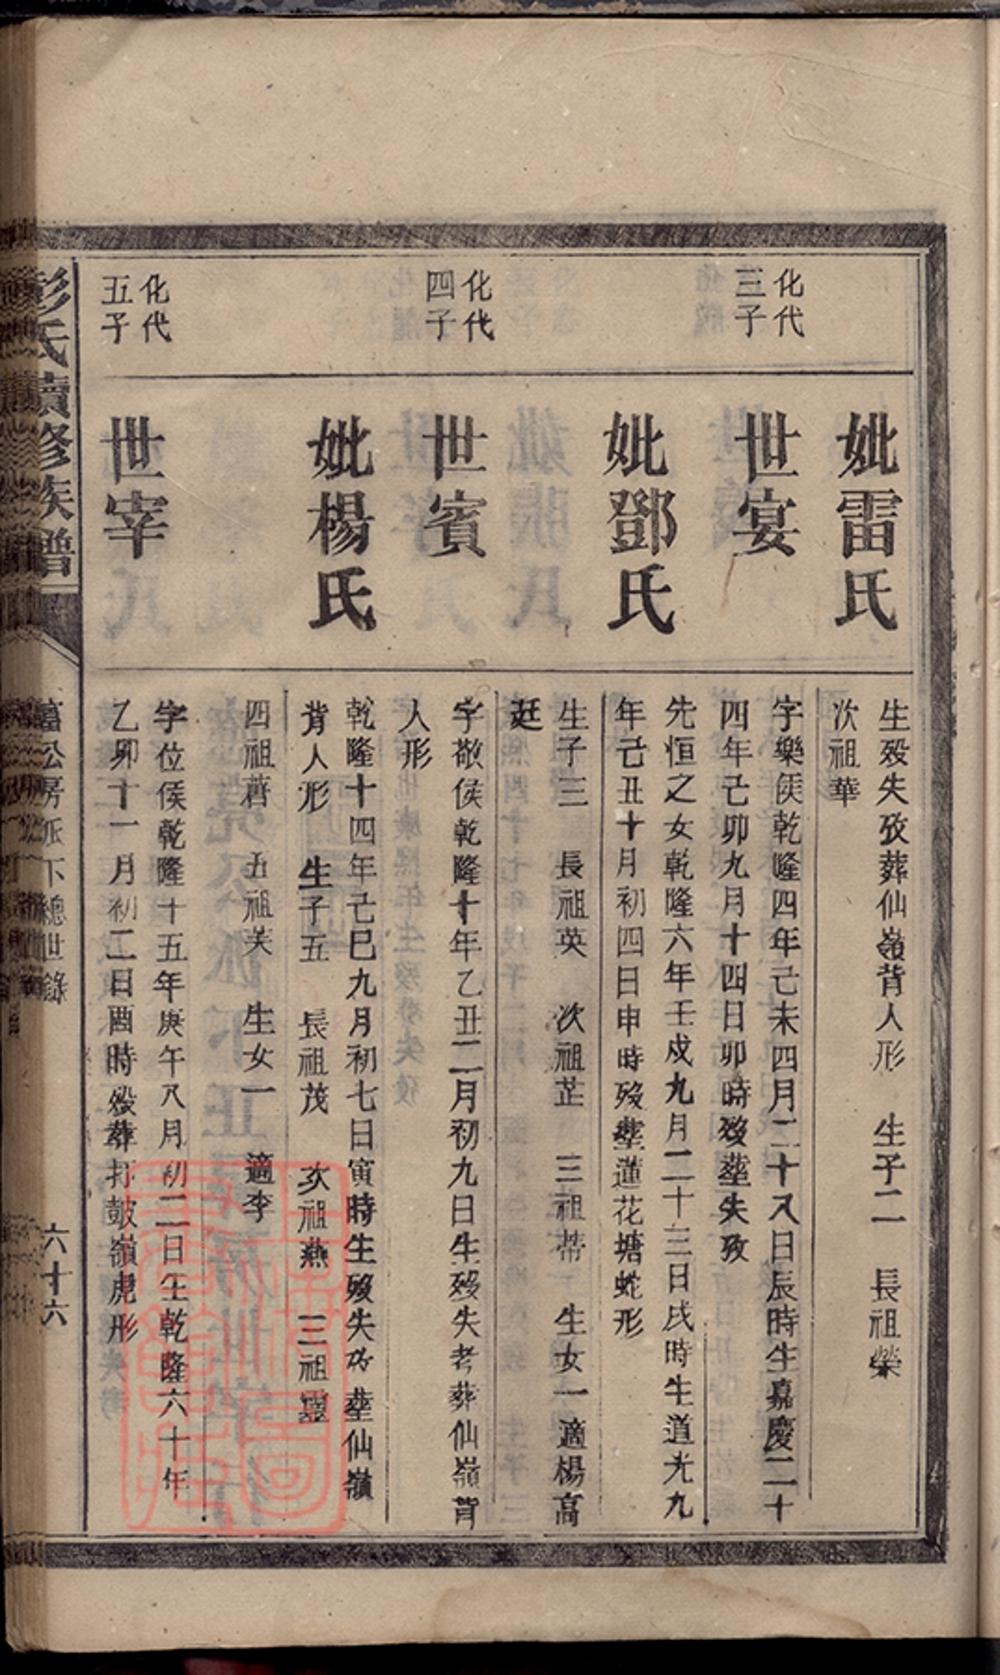 妣雷氏
生歿失攷葬仙嶺背人形 生子二 長祖榮
次祖華
化代
三子
世宴
字樂俟乾隆四年己未四月二十八日辰時生嘉慶二十
四年己卯九月十四日卯時歿塟失攷
妣鄧氏
先恒之女乾隆六年壬戌九月二十三日戌時生道光九
年己丑十月初四日申時歿塟蓮花塘蛇形
生子三 長祖英 次祖芷 三祖蒂 生女一適楊高
廷
化代
四子
世賓
字敬俟乾隆十年乙丑二月初九日生歿失考葬仙嶺背
人形
妣楊氏
乾隆十四年己巳九月初七日寅時生歿失攷塟仙嶺
背人形 生子五 長祖茂 次祖燕 三祖靈
四祖 五祖芙 生女一 適李
化代
五子
世宰
字位俟乾隆十五年庚午八月初二日生乾隆六十年
乙卯十一月初二日酉時歿葬打鼓嶺虎形
彭氏續修族譜
公房派下總世錄
六十六